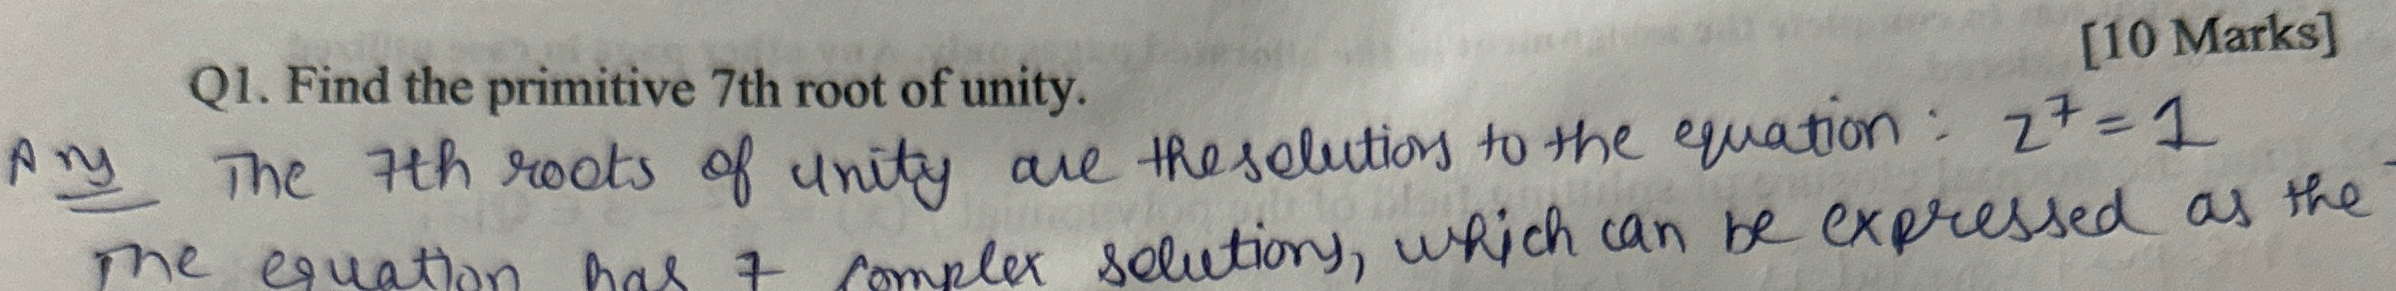 [10 Marks]
Q1. Find the primitive 7th root of unity.
Ans The 7th roots of unity are the solutions to the equation : z⁷ = 1
The equation has 7 complex solutions, which can be expressed as the